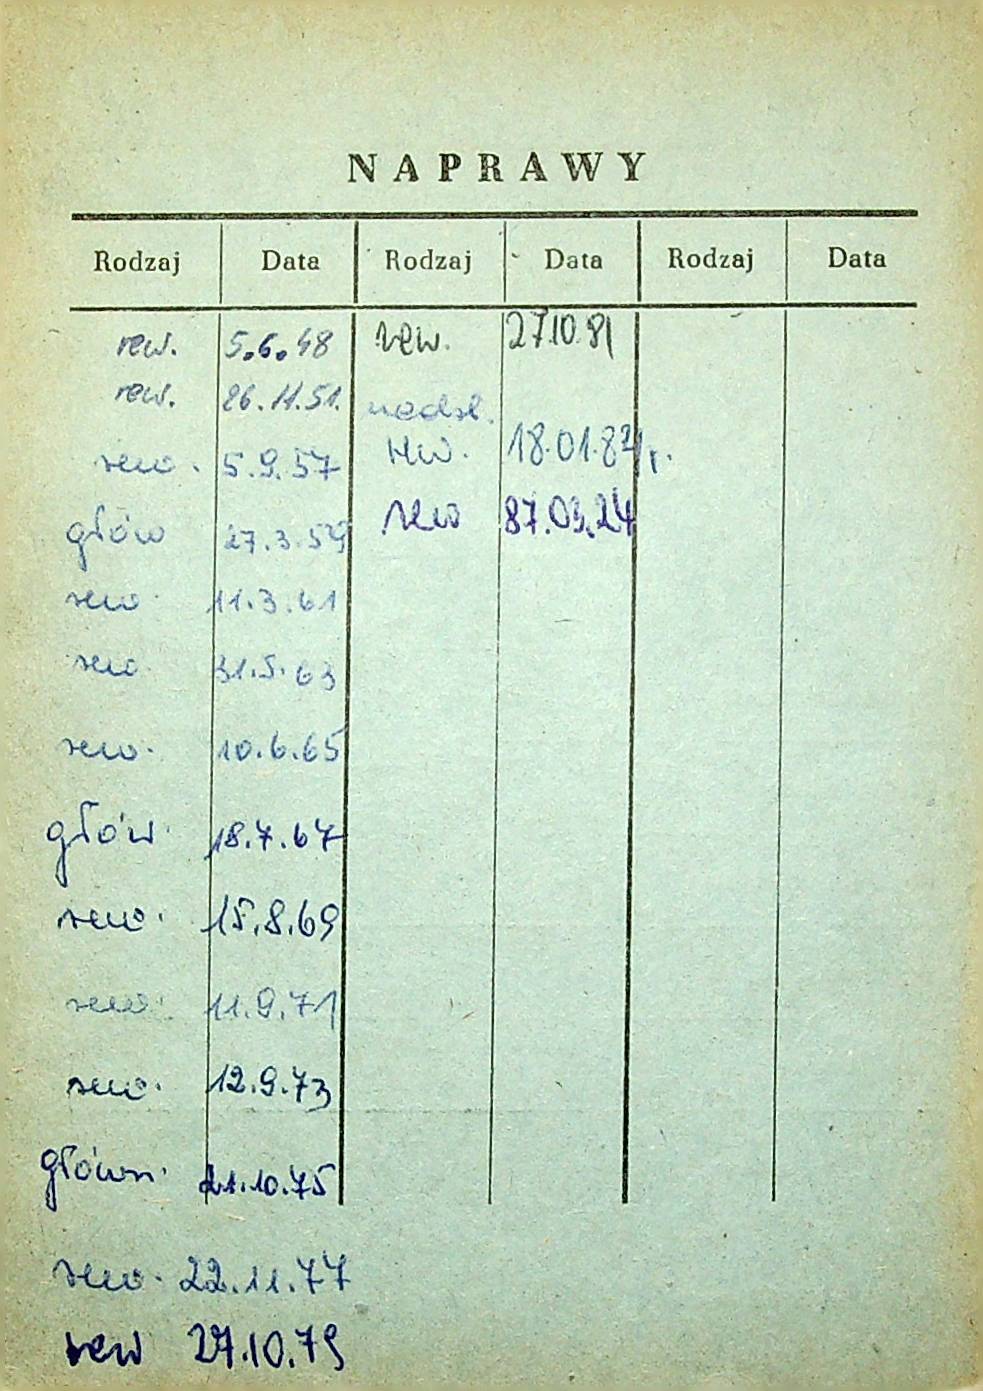 NAPRAWY
Rodzaj Data Rodzaj Data Rodzaj Data
rew. 5.6.48
rew. 26.11.51.
rew. 5.9.57
głów 27.3.59
rew. 11.3.61
rew 31.5.63
rew. 10.6.65
głów. 18.7.67
rew. 15.8.69
rew. 11.9.71
rew. 12.9.73
główn. 21.10.75
rew. 22.11.77
rew 27.10.79
rew. 27.10.81
nadzl.
rew. 18.01.84r.
rew 87.03.24